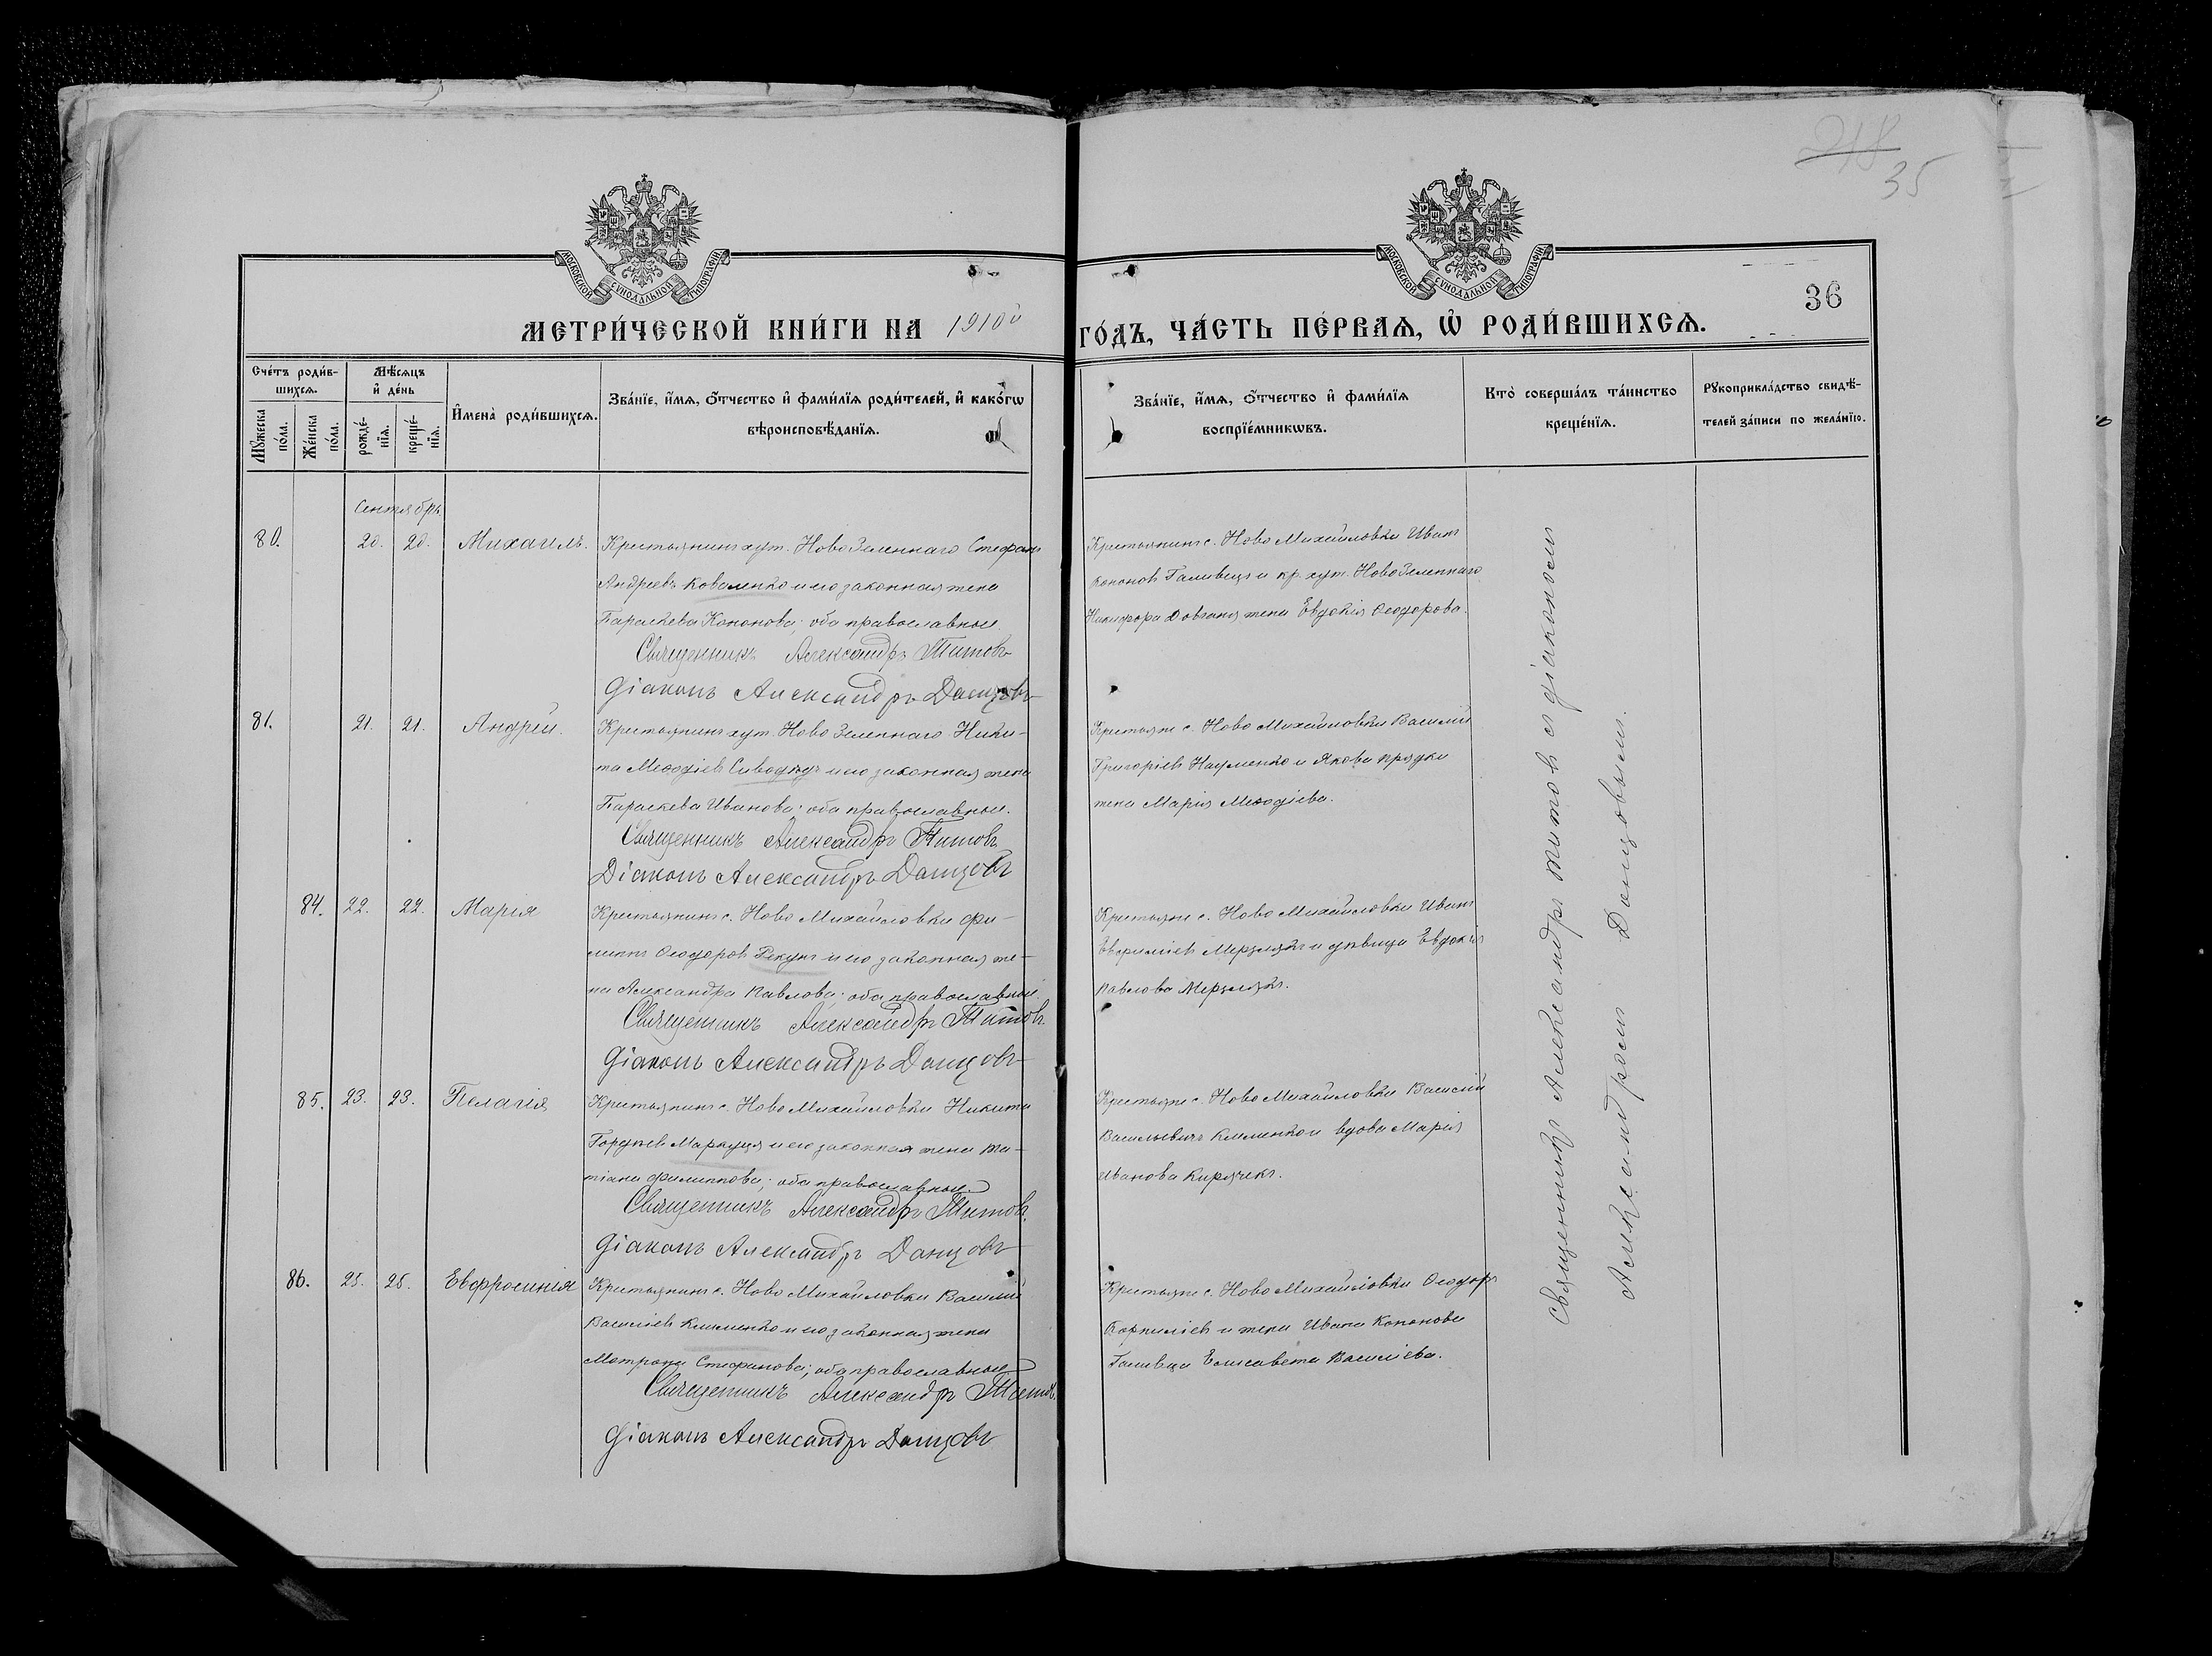 218
35
МОСКОВСКОЙ СѴНОДАЛЬНОЙ ТИПОГРАФІИ
МОСКОВСКОЙ СѴНОДАЛЬНОЙ ТИПОГРАФІИ
36
МЕТРИ́ЧЕСКОЙ КНИ́ГИ НА 1910й
ГО́ДЪ, ЧА́СТЬ ПЕ́РВАѦ, Ѡ РОДИ́ВШИХСѦ.
Сче́тъ роди́в-
шихсѧ.
Мѣ́сѧцъ
и де́нь
Мꙋ́жеска
по́ла.
Же́нска
по́ла.
рожде́-
нїѧ.
креще́-
нїѧ.
Имена̀ роди́вшихсѧ.
Зва́нїе, и́мѧ, о́тчество и фами́лїѧ роди́телей, и како́гѡ
вѣроисповѣ́данїѧ.
Зва́нїе, и́мѧ, о́тчество и фами́лїѧ
воспрїе́мникѡвъ.
Кто̀ соверша́лъ та́инство
креще́нїѧ.
Рꙋкоприкла́дство свидѣ́-
телей за́писи по жела́нїю.
Сентябрь
80. 20. 20. Михаилъ.
Крестьянинъ хут. Ново Зеленнаго Стефанъ
Андреевъ Коваленко и его законная жена
Параскева Кононова; оба православные.
Священникъ Александръ Титовъ
Діаконъ Александръ Донцовъ
Крестьянинъ с. Ново Михайловки Иванъ
Кононовъ Галивецъ и кр. хут. Ново Зеленнаго
Никифора Довганя жена Евдокія Ѳеодорова.
81. 21. 21. Андрей.
Крестьянинъ хут. Ново Зеленнаго Ники-
та Меѳодіевъ и его законная жена
Параскева Иванова; оба православные.
Священникъ Александръ Титовъ
Діаконъ Александръ Донцовъ
Крестьяне с. Ново Михайловки Василій
Григоріевъ Науменко и Якова Прядки
жена Марія Меѳодіева.
84. 22. 22. Марія
Крестьянинъ с. Ново Михайловки Фи-
липпъ Ѳеодоровъ Рекунъ и его законная же-
на Александра Павлова; оба православные
Священникъ Александръ Титовъ.
Діаконъ Александръ Донцовъ
Крестьяне с. Ново Михайловки Иванъ
Евфиміевъ Мерзлякъ и дѣвица Евдокія
Павлова Мерзлякъ.
85. 23. 23. Пелагія
Крестьянинъ с. Ново Михайловки Никита
Гордѣевъ Маркуця и его законная жена Та-
тіана Филиппова; оба православные.
Священникъ Александръ Титовъ.
Діаконъ Александръ Донцовъ
Крестьяне с. Ново Михайловки Василій
Васильевичъ Клименко и вдова Марія
Иванова Кирячекъ.
86. 25. 25. Евфросинія
Крестьянинъ с. Ново Михайловки Василій
Васильевъ Клименко и его законная жена
Матрона Стефанова; оба православные
Священникъ Александръ Титовъ.
Діаконъ Александръ Донцовъ
Крестьяне с. Ново Михайловки Ѳеодоръ
Корниліевъ и жена Ивана Кононова
Галивца Елисавета Василіева.
Священникъ Александръ Титовъ съ діакономъ
Александромъ Донцовымъ.